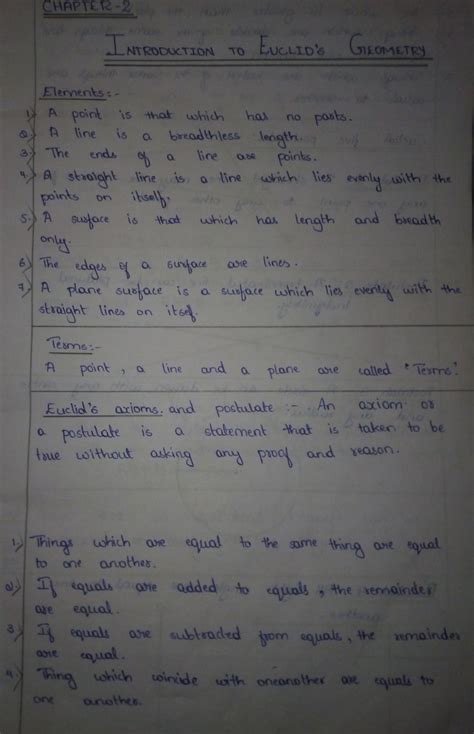 CHAPTER-2
INTRODUCTION TO EUCLID'S GEOMETRY
Elements:-
1) A point is that which has no parts.
2) A line is a breadthless length.
3) The ends of a line are points.
4.) A straight line is a line which lies evenly with the
points on itself.
5.) A surface is that which has length and breadth
only.
6) The edges of a surface are lines.
7) A plane surface is a surface which lies evenly with the
straight lines on itself.
Terms:-
A point, a line and a plane are called "Terms."
Euclid's axioms and postulate :- An axiom or
a postulate is a statement that is taken to be
true without asking any proof and reason.
1.) Things which are equal to the same thing are equal
to one another.
2) If equals are added to equals, the remainder
are equal.
3) If equals are subtracted from equals, the remainder
are equal.
4.) Thing which coincide with oneanother are equals to
one another.